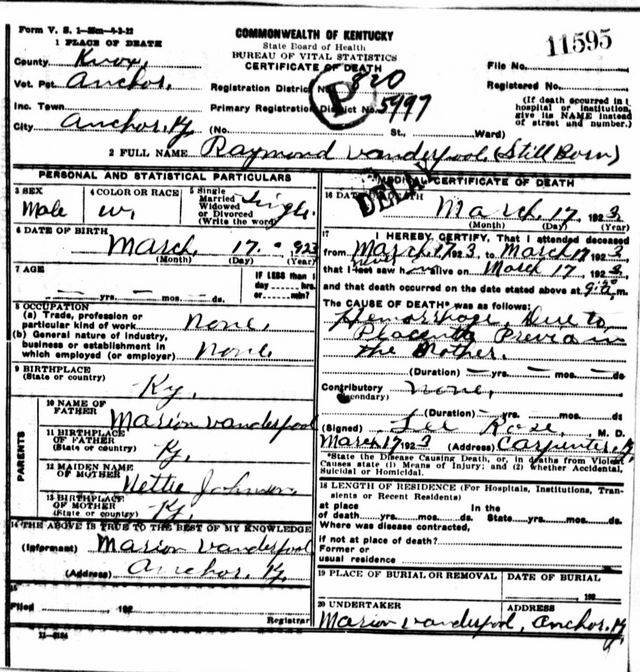 Form V. S. 1—25m—4-3-22
COMMONWEALTH OF KENTUCKY
State Board of Health
BUREAU OF VITAL STATISTICS
CERTIFICATE OF DEATH
11595
1 PLACE OF DEATH
County Knox,
Vot. Pct. Anchor.
Inc. Town
City Anchor, Ky. (No. St., Ward)
Registration District No. 820
Primary Registration District No. 5997
P
File No.
Registered No.
(If death occurred in a
hospital or institution,
give its NAME instead
of street and number.)
2 FULL NAME Raymond Vanderpool (Still Born)
PERSONAL AND STATISTICAL PARTICULARS
3 SEX
Male
4 COLOR OR RACE
W.
5 Single
Married
Widowed
or Divorced
(Write the word)
Single.
6 DATE OF BIRTH
March 17. 1923
(Month) (Day) (Year)
7 AGE
— yrs. — mos. — ds.
IF LESS than 1
day hrs.
or min.?
8 OCCUPATION
(a) Trade, profession or
particular kind of work None.
(b) General nature of industry,
business or establishment in
which employed (or employer) None
9 BIRTHPLACE
(State or country)
Ky.
PARENTS
10 NAME OF
FATHER
Marion Vanderpool
11 BIRTHPLACE
OF FATHER
(State or country)
Ky.
12 MAIDEN NAME
OF MOTHER
Nettie Johnson
13 BIRTHPLACE
OF MOTHER
(State or country)
Ky.
14 THE ABOVE IS TRUE TO THE BEST OF MY KNOWLEDGE
(Informant) Marion Vanderpool
(Address) Anchor. Ky.
15
Filed , 192
Registrar
MEDICAL CERTIFICATE OF DEATH
DELAY
16 DATE OF DEATH
March 17. 1923
(Month) (Day) (Year)
17
I HEREBY CERTIFY, That I attended deceased
from March 17 1923, to March 17 1923
never
that I last saw h alive on March 17, 1923,
and that death occurred on the date stated above at m.
The CAUSE OF DEATH* was as follows:
Hemorrhage, Due to
Placenta Previa in
the Mother.
(Duration) — yrs. — mos. — ds.
Contributory None,
(Secondary)
(Duration) — yrs. mos. ds.
(Signed) Lee Rose, M. D.
March 17 1923 (Address) Carpenter, Ky.
*State the Disease Causing Death, or, in deaths from Violent
Causes state (1) Means of Injury; and (2) whether Accidental,
Suicidal or Homicidal.
18 LENGTH OF RESIDENCE (For Hospitals, Institutions, Tran-
sients or Recent Residents)
at place In the
of death yrs. mos. ds. State yrs. mos. ds.
Where was disease contracted,
if not at place of death?
Former or
usual residence
19 PLACE OF BURIAL OR REMOVAL
DATE OF BURIAL
, 192
20 UNDERTAKER
ADDRESS
Marion Vanderpool, Anchor, Ky.